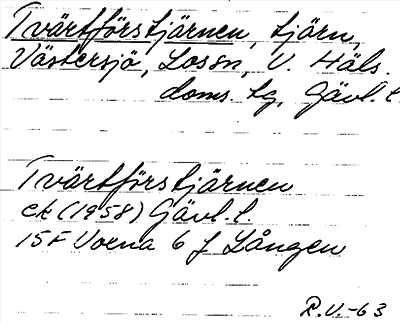 Tvärtförstjärnen, tjärn,
Västersjö, Lossn, V. Häls.
doms. tg, Gävl. l.
Tvärtförstjärnen
ek (1958) Gävl. l.
15F Voxna 6 f Lången
R.V.-63